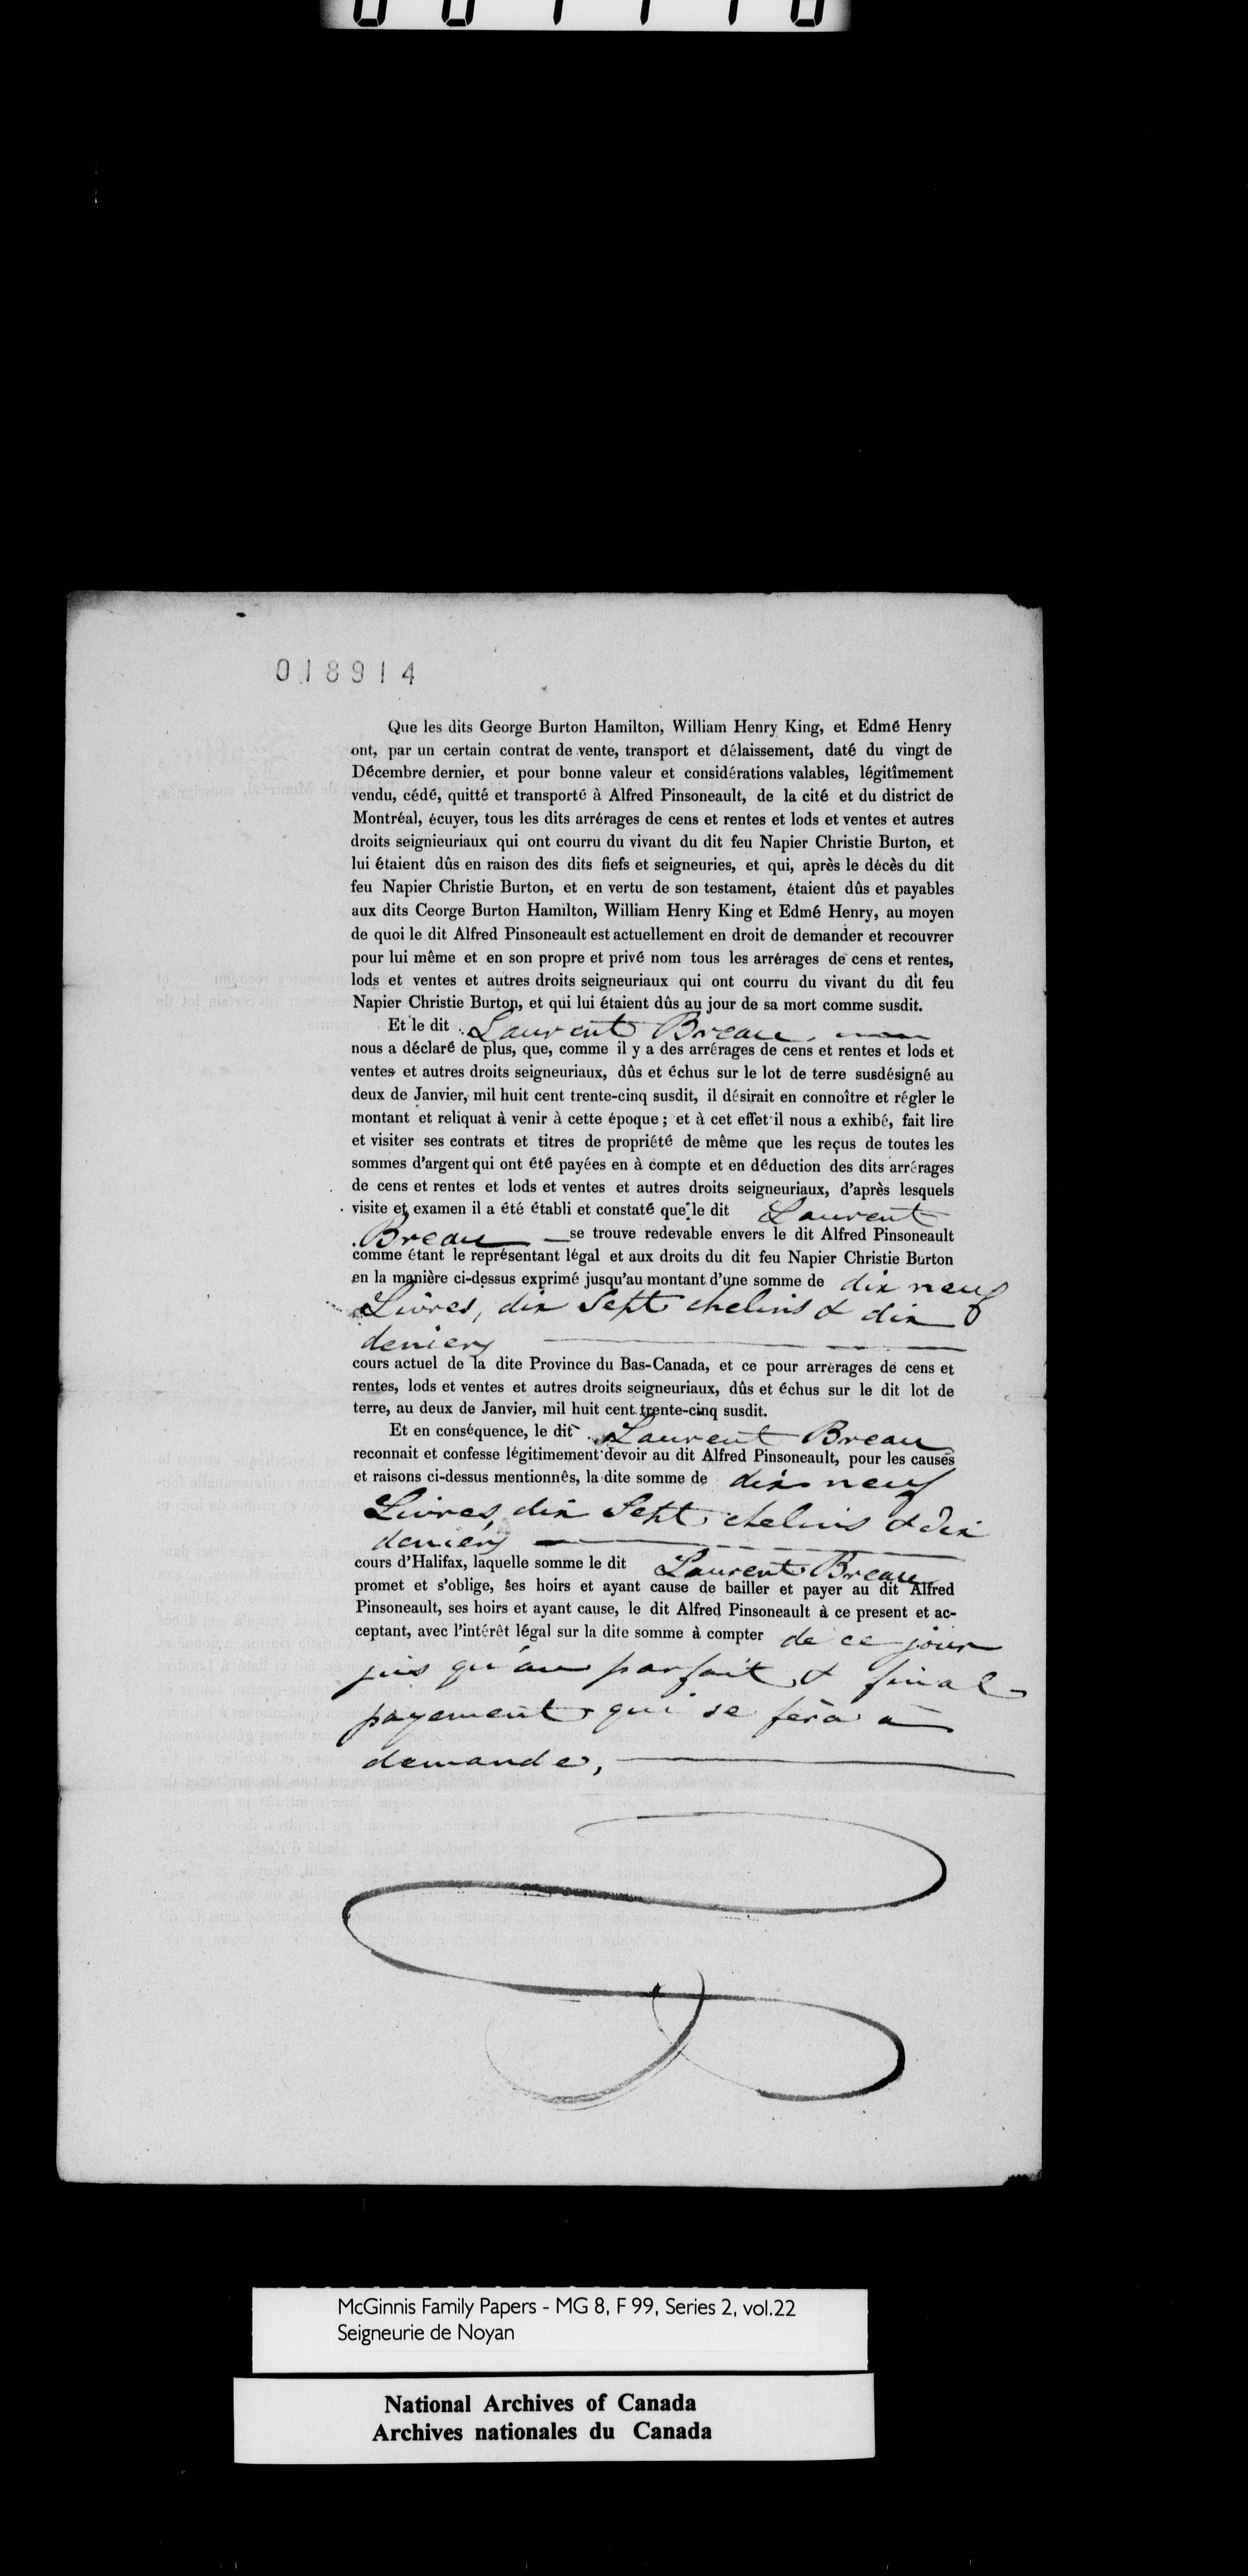 018914
Que les dits George Burton Hamilton, William Henry King, et Edmé Henry
ont, par un certain contrat de vente, transport et délaissement, daté du vingt de
Décembre dernier, et pour bonne valeur et considérations valables, légitîmement
vendu, cédé, quitté et transporté à Alfred Pinsoneault, de la cité et du district de
Montréal, écuyer, tous les dits arrérages de cens et rentes et lods et ventes et autres
droits seignieuriaux qui ont courru du vivant du dit feu Napier Christie Burton, et
lui étaient dûs en raison des dits fiefs et seigneuries, et qui, après le décès du dit
feu Napier Christie Burton, et en vertu de son testament, étaient dûs et payables
aux dits Ceorge Burton Hamilton, William Henry King et Edmé Henry, au moyen
de quoi le dit Alfred Pinsoneault est actuellement en droit de demander et recouvrer
pour lui même et en son propre et privé nom tous les arrérages de cens et rentes,
lods et ventes et autres droits seigneuriaux qui ont courru du vivant du dit feu
Napier Christie Burton, et qui lui étaient dûs au jour de sa mort comme susdit.
Et le dit Laurent Breau
nous a déclaré de plus, que, comme il y a des arrérages de cens et rentes et lods et
ventes et autres droits seigneuriaux, dûs et échus sur le lot de terre susdésigné au
deux de Janvier, mil huit cent trente-cinq susdit, il désirait en connoître et régler le
montant et reliquat à venir à cette époque; et à cet effet il nous a exhibé, fait lire
et visiter ses contrats et titres de propriété de même que les reçus de toutes les
sommes d'argent qui ont été payées en à compte et en déduction des dits arrérages
de cens et rentes et lods et ventes et autres droits seigneuriaux, d'après lesquels
visite et examen il a été établi et constaté que le dit Laurent
Breau — se trouve redevable envers le dit Alfred Pinsoneault
comme étant le représentant légal et aux droits du dit feu Napier Christie Burton
en la manière ci-dessus exprimé jusqu'au montant d'une somme de dix neuf
Livres, dix Sept chelins & dix
deniers
cours actuel de la dite Province du Bas-Canada, et ce pour arrèrages de cens et
rentes, lods et ventes et autres droits seigneuriaux, dûs et échus sur le dit lot de
terre, au deux de Janvier, mil huit cent trente-cinq susdit.
Et en conséquence, le dit Laurent Breau
reconnait et confesse légitimement devoir au dit Alfred Pinsoneault, pour les causes
et raisons ci-dessus mentionnés, la dite somme de dix neuf
Livres, dix Sept chelins & dix
deniers
cours d'Halifax, laquelle somme le dit Laurent Breau
promet et s'oblige, ses hoirs et ayant cause de bailler et payer au dit Alfred
Pinsoneault, ses hoirs et ayant cause, le dit Alfred Pinsoneault à ce present et ac-
ceptant, avec l'intérêt légal sur la dite somme à compter de ce jour
jus qu'au parfait & final
payement qui se fera à
demande,
McGinnis Family Papers - MG 8, F 99, Series 2, vol.22
Seigneurie de Noyan
National Archives of Canada
Archives nationales du Canada